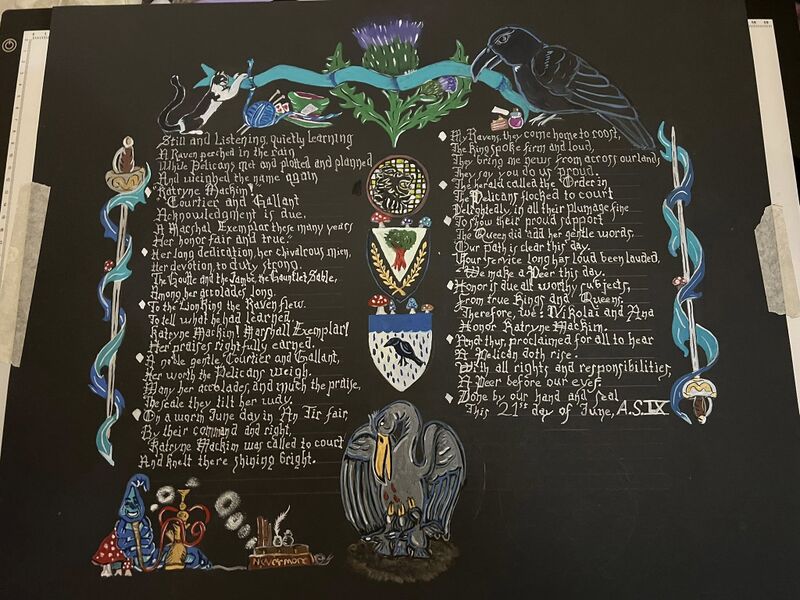 Still and Listening, quietly learning
A Raven perched in the rain
While Pelicans met and plotted and planned
And weighed the name again
"Katryne Mackim!"
Courtier and Gallant
Acknowledgment is due.
A Marshal Exemplar these many years
Her honor fair and true."
Her long dedication, her chivalrous mien,
Her devotion to duty strong.
The Goutte and the Jambe, the Gauntlet Sable,
Among her accolades long.
To the Lion King the Raven flew.
To tell what he had learned.
Katryne Mackim! Marshall Exemplar!
Her praises rightfully earned.
A noble gentle, Courtier and Gallant,
Her worth the Pelicans weigh.
Many her accolades, and much the praise,
The scale they tilt her way.
On a warm June day in An Tir fair,
By their command and right,
Katryne Mackim was called to court
And knelt there shining bright.
My Ravens, they come home to roost,
The King spoke firm and loud,
They bring me news from across our land,
They say you do us proud.
The herald called the Order in,
The Pelicans flocked to court
Delightedly, in all their plumage fine
To show their proud support
The Queen did add her gentle words,
Our path is clear this day.
Your service long has loud been lauded,
We make a Peer this day.
Honor is due all worthy subjects,
From true Kings and Queens.
Therefore, we: Nikolai and Ana
Honor Katryne Mackim.
And thus proclaimed for all to hear
A Pelican doth rise.
With all rights and responsibilities,
A Peer before our eyes.
Done by our hand and seal
This 21st day of June, A.S. LX
Nevermore